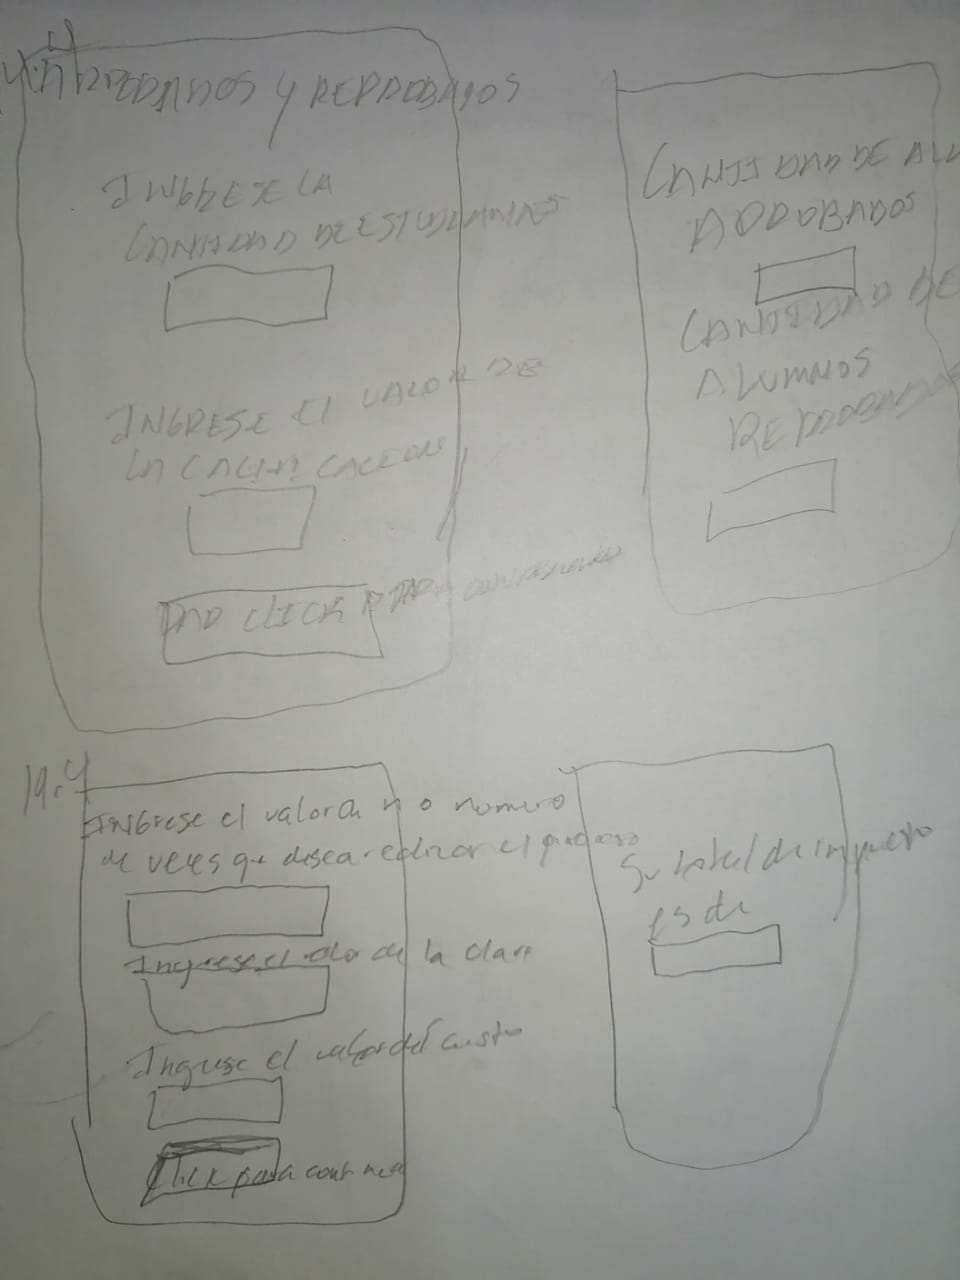 APROBADOS Y REPROBADOS
INGRESE LA
CANTIDAD DE ESTUDIANTES
INGRESE EL VALOR DE
LA CALIFICACION
DAR CLICK PARA
CANTIDAD DE ALU
APROBADOS
CANTIDAD DE
ALUMNOS
REPROBADOS
19.4
INGrese el valor a n o numero
de veces que desea realizar el proceso
Ingrese el valor de la clave
Ingrese el valor del Costo
Click para continuar
Su total de impuesto
es de